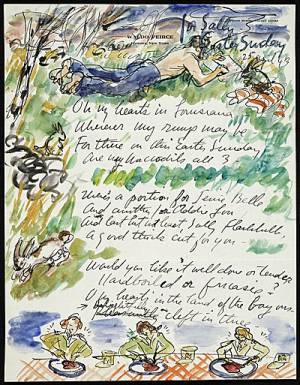 WALDO PEIRCE
NEW YORK
for Sally
Easter Sunday
Oh my hearts in Louisiana
Wherever my rump may be
For there on this Easter Sunday
Are my all 3
There's a portion for Jenie Belle
And another for
And last but not least Sally
A good thick cut for you —
Would you like it well done or tender
Hardboiled or fricassee?
hearts in the land of the bayous
cleft in three